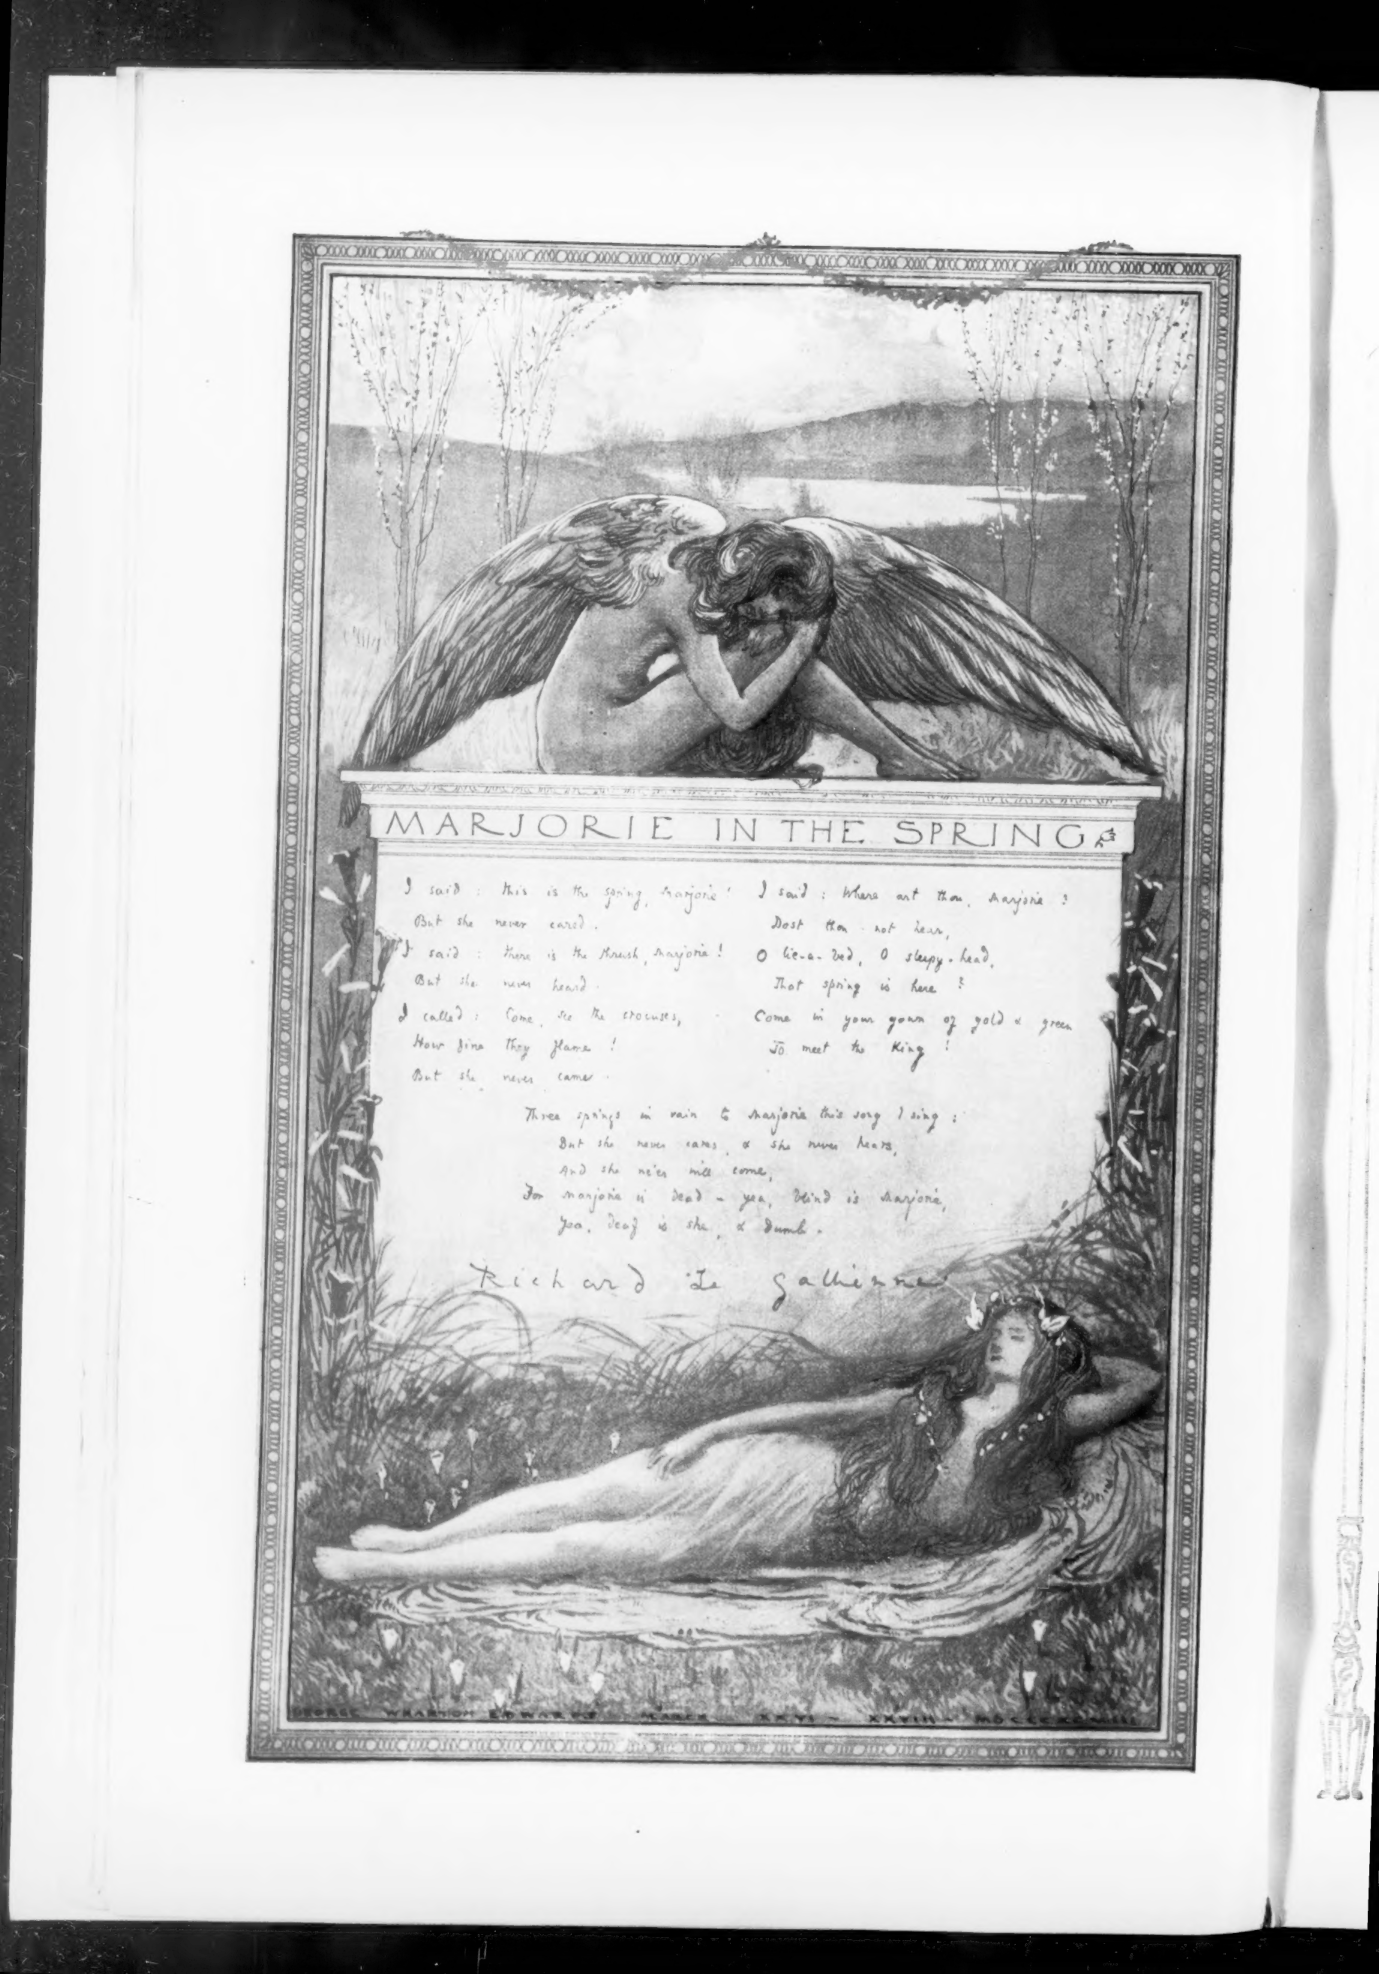 MARJORIE IN THE SPRING
I said : this is the spring, Marjorie!
But she never cared.
I said : there is the thrush, Marjorie!
But she never heard.
I called : Come, see the crocuses,
How fine they flame !
But she never came.
I said : Where art thou, Marjorie ?
Dost thou not hear,
O lie-a-bed, O sleepy-head,
That spring is here ?
Come in your gown of gold & green
To meet the King !
Three springs in vain to Marjorie this song I sing :
But she never cares, & she never hears,
And she ne'er will come,
For Marjorie is dead - yea, blind is Marjorie,
Yea, deaf is she, & dumb.
Richard Le Gallienne
GEORGE WHARTON EDWARDS MARCH XXVI - XXVIII -